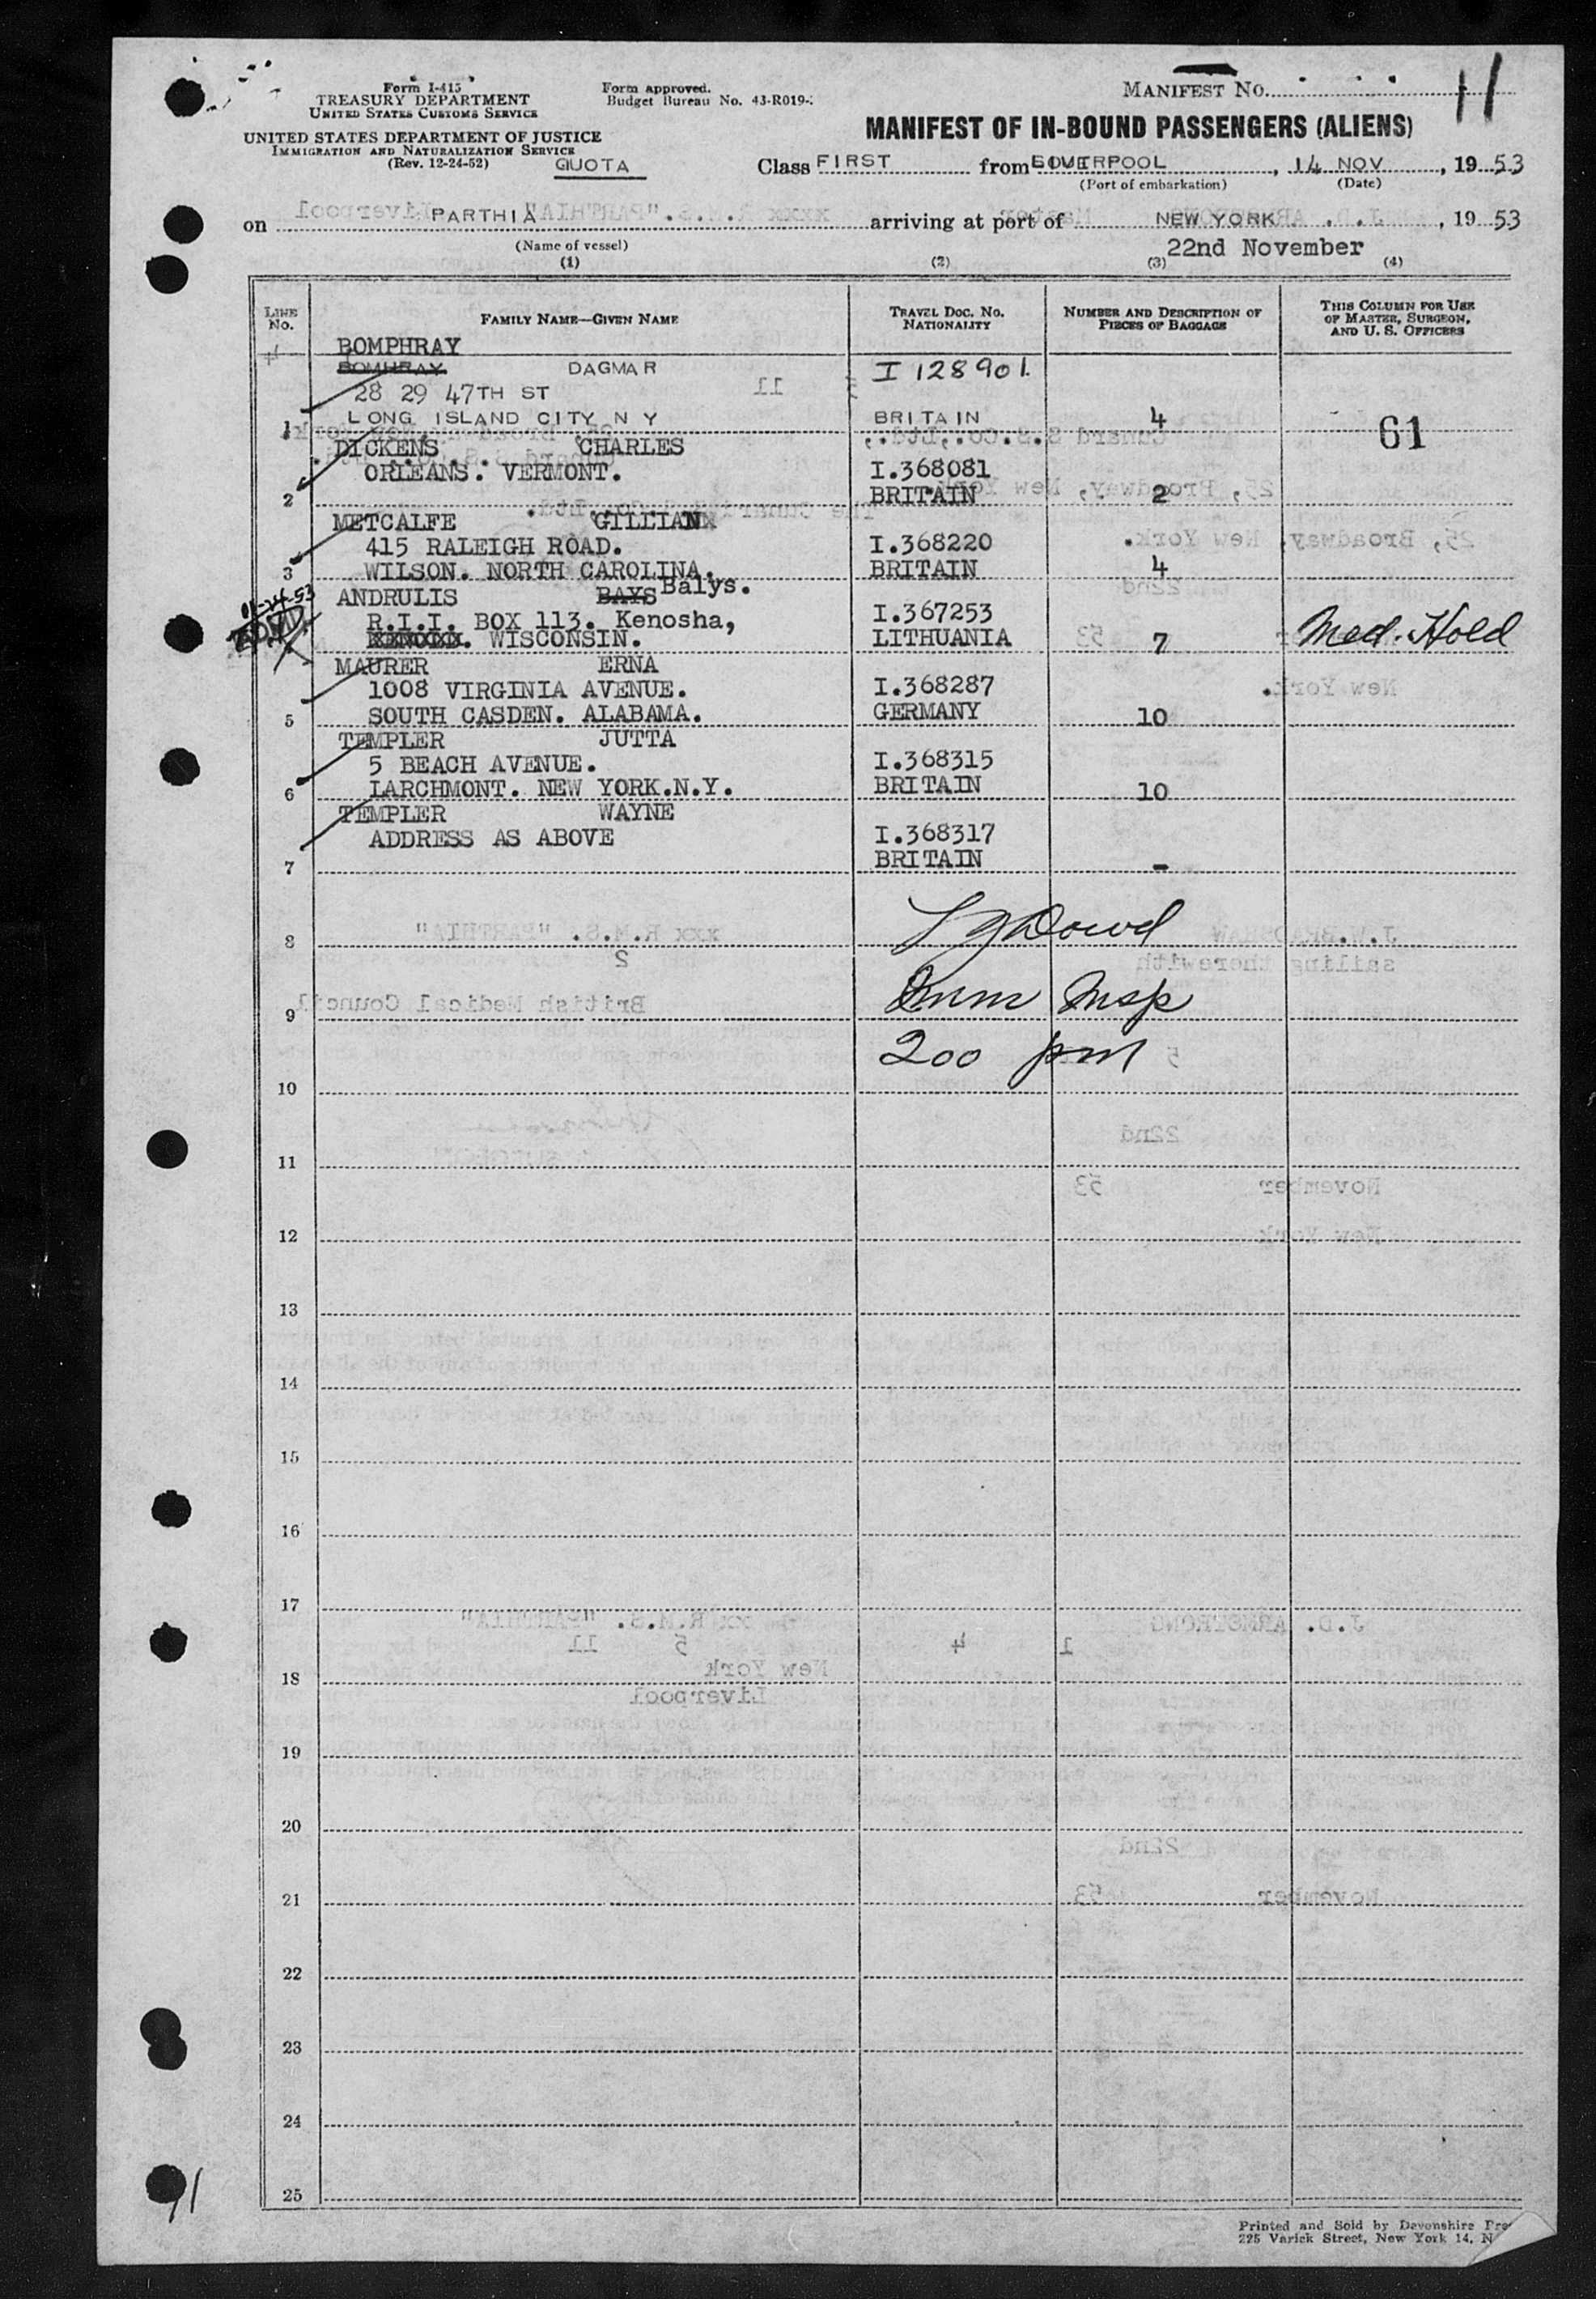 Form I-415
TREASURY DEPARTMENT
UNITED STATES CUSTOMS SERVICE
UNITED STATES DEPARTMENT OF JUSTICE
IMMIGRATION AND NATURALIZATION SERVICE
(Rev. 12-24-52)
QUOTA
Form approved.
Budget Bureau No. 43-R019-
MANIFEST NO. 11
MANIFEST OF IN-BOUND PASSENGERS (ALIENS)
Class FIRST from LIVERPOOL, 14 NOV, 1953
(Port of embarkation) (Date)
on PARTHIA arriving at port of NEW YORK, 1953
(Name of vessel) 22nd November
(1) (2) (3) (4)
LINE No. FAMILY NAME—GIVEN NAME TRAVEL DOC. NO. NATIONALITY NUMBER AND DESCRIPTION OF PIECES OF BAGGAGE THIS COLUMN FOR USE OF MASTER, SURGEON, AND U. S. OFFICERS
BOMPHRAY
BOMHRAY DAGMAR I 128901
28 29 47TH ST
1 LONG ISLAND CITY N Y BRITAIN 4 61
DICKENS CHARLES
ORLEANS. VERMONT. I.368081
2 BRITAIN 2
METCALFE GILLIAN
415 RALEIGH ROAD. I.368220
3 WILSON. NORTH CAROLINA. BRITAIN 4
ANDRULIS BAYS Balys.
R.I.I. BOX 113. Kenosha, I.367253
WISCONSIN. LITHUANIA 7 Med. Hold
MAURER ERNA
1008 VIRGINIA AVENUE. I.368287
5 SOUTH CASDEN. ALABAMA. GERMANY 10
TEMPLER JUTTA
5 BEACH AVENUE. I.368315
6 LARCHMONT. NEW YORK.N.Y. BRITAIN 10
TEMPLER WAYNE
ADDRESS AS ABOVE I.368317
7 BRITAIN -
8
9
200 pm
10
11
12
13
14
15
16
17
18
19
20
21
22
23
24
25
Printed and Sold by Devonshire
225 Varick Street, New York 14,